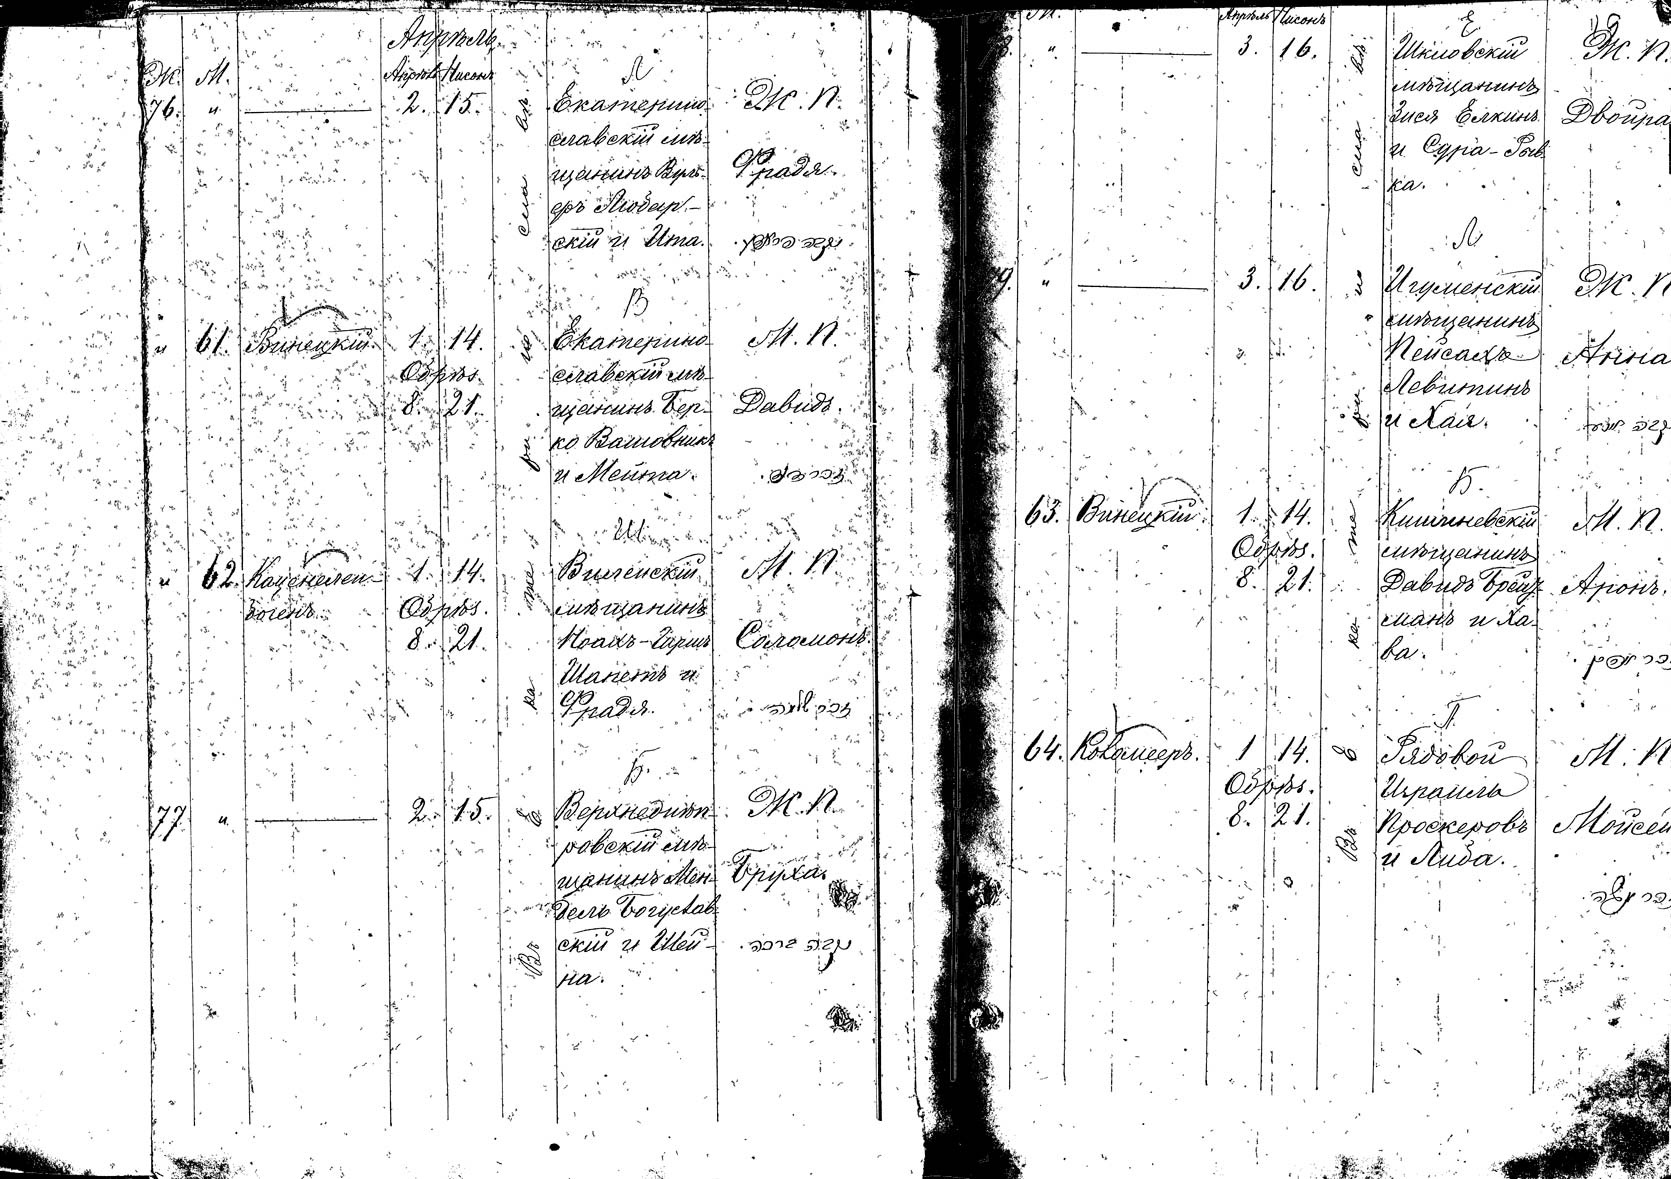 Апрѣль
Ж. М. Апрѣль Нисонъ
Л
76. " 2. 15.
Екатерино-
славскій мѣ-
щанинъ Вуль-
фъ Любар-
скій и Ита.
Ж. П.
Фрадя.
В
" 61. Винецкій. 1. 14.
Обрѣз.
8. 21.
Екатерино-
славскій мѣ-
щанинъ Бер-
ко Вашовникъ
и Мейта.
М. П.
Давидъ.
Ш.
" 62. Каценелен-
богенъ. 1. 14.
Обрѣз.
8. 21.
Виленскій
мѣщанинъ
Ноахъ-Гиршъ
Шапетъ и
Фрадя.
М. П.
Соломонъ.
זכר שלמה
Б.
77 " 2. 15.
Верхнеднѣп-
ровскій мѣ-
щанинъ Мен-
дель Богуслав-
скій и Шей-
на.
Ж. П.
Бруха.
נקבה ברכה
М. Апрѣль Нисонъ
Е
" 3. 16.
Шкловскій
мѣщанинъ
Зися Елкинъ
и Сура-Рыв-
ка.
Ж. П.
Двойра
Л
" 3. 16.
Игуменскій
мѣщанинъ
Пейсахъ
Левитинъ
и Хая.
Ж. П
Анна
Б.
63. Винецкій. 1. 14.
Обрѣз.
8. 21.
Кишиневскій
мѣщанинъ
Давидъ Брейт-
манъ и Ха-
ва.
М. П.
Аронъ.
П.
64. 1 14.
Обрѣз.
8. 21.
Рядовой
Израиль
Проскеровъ
и Либа.
М. П
Мойсей
Въ Екатеринославѣ
Въ Екатеринославѣ